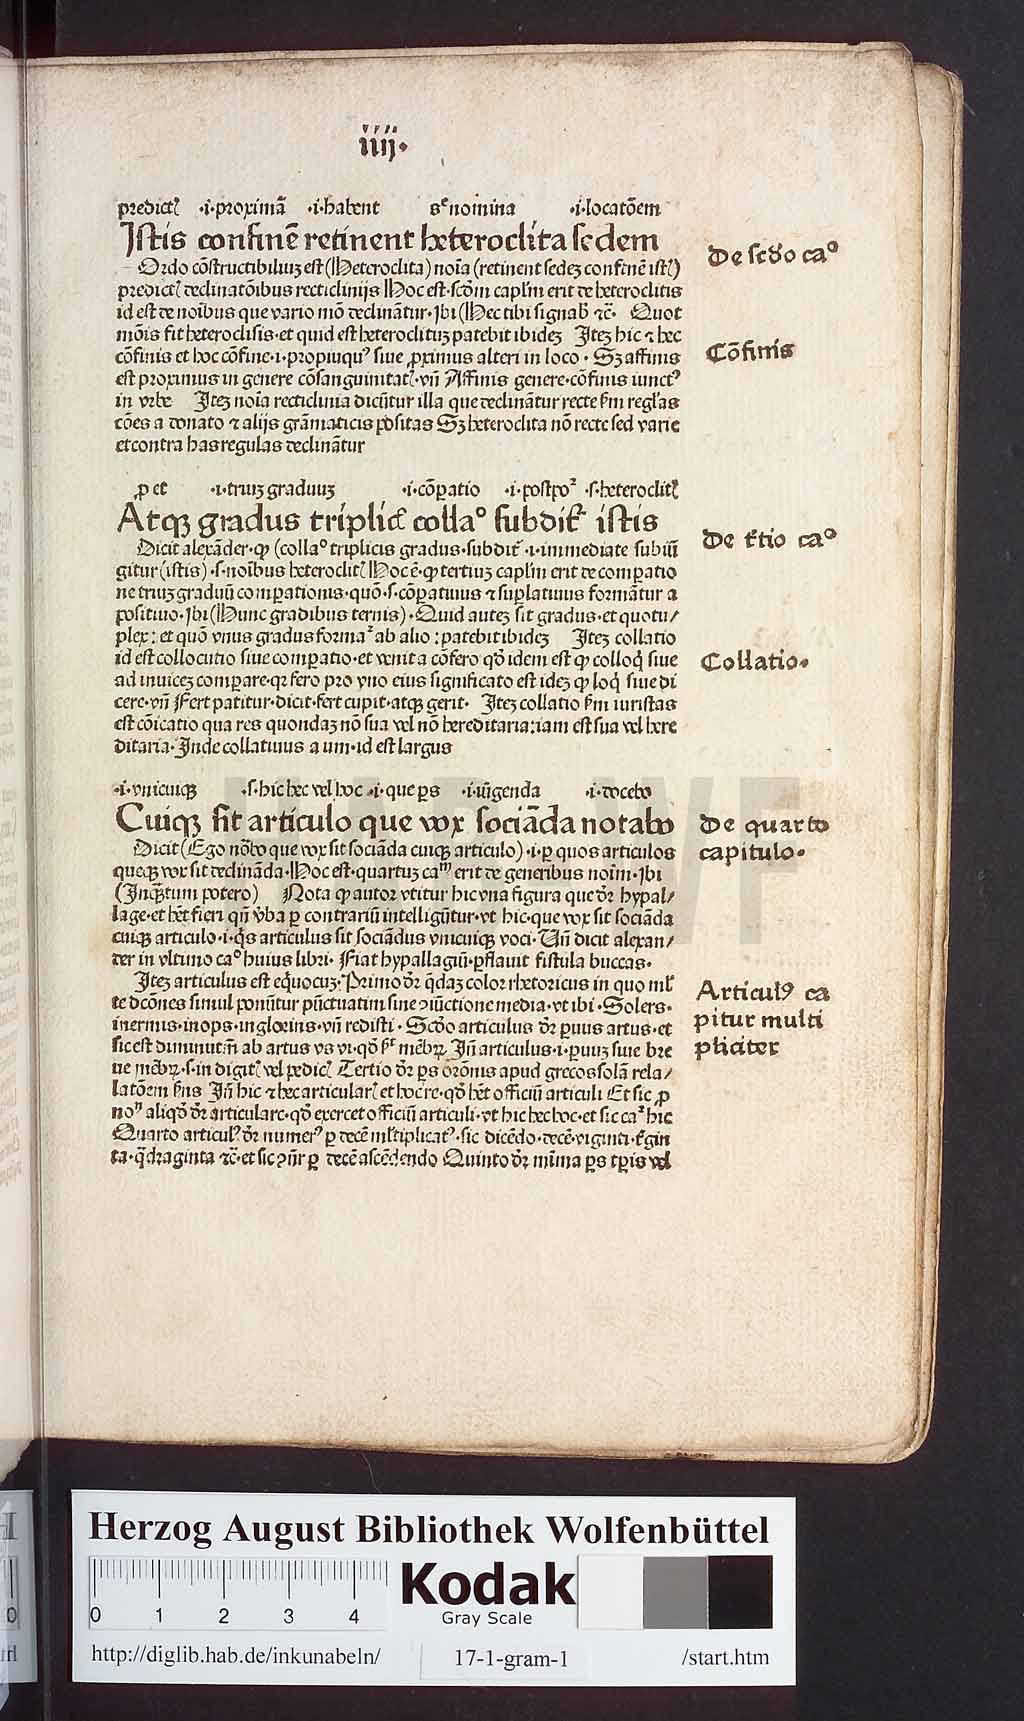 iiij.
predictꝭ .i.proximā .i.habent sꝫ nomina .i.locatōem
Istis confinē retinent heteroclita sedem
De scḋo caº
Ordo cōstructibiliuꝫ est (Heteroclita) noīa (retinent sedeꝫ confinē istꝭ)
predictꝭ declinatōibus recticlinijs Hoc est.scḋm caplm̄ erit de heteroclitis
id est de noībus que vario mō declinātur.Ibi (Hec tibi signab̄ ⁊c̄. Quot
mōis fit heteroclisis.et quid est heteroclituꝫ patebit ibideꝫ Iteꝫ hic ⁊ hec
cōfinis et hoc cōfine.i.propiuquꝰ siue ꝓximus alteri in loco. Sꝫ affinis
Cōfinis
est proximus in genere cōsanguinitatꝭ.vn̄ Affinis genere.cōfinis iunctꝰ
in vrbe Iteꝫ noīa recticlinia dicūtur illa que declinātur recte ẜm regl̓as
cōes a donato ⁊ alijs grāmaticis positas Sꝫ heteroclita nō recte sed varie
et contra has regulas declinātur
ꝓ et .i.triuꝫ graduuꝫ .i.cōꝑatio .i.postpoꝛ .s.heteroclitꝭ
Atqꝫ gradus triplicꝭ collaº subditꝛ istis
De t̓tio caº
Dicit alexāder.ꝙ (collaº triplicis gradus.subditꝛ.i.immediate subiū
gitur (istis).s.noībus heteroclitꝭ Hoc ē.ꝙ tertiuꝫ caplm̄ erit de comꝑatio
ne triuꝫ graduū comꝑationis.quō.s.cōꝑatiuus ⁊ suꝑlatiuus formātur a
positiuo.Ibi (Hunc gradibus ternis).Quid auteꝫ sit gradus.et quotu/
plex: et quō vnus gradus formaꝛ ab alio: patebit ibideꝫ Iteꝫ collatio
id est collocutio siue comꝑatio.et venit a cōfero qḋ idem est ꝙ colloq̇ siue
Collatio.
ad inuiceꝫ comꝑare.qꝛ fero pro vno eius significato est ideꝫ ꝙ loq̇ siue di
cere.vn̄ Fert patitur.dicit.fert cupit.atqꝫ gerit. Iteꝫ collatio ẜm iuristas
est cōicatio qua res quondaꝫ nō sua vel nō hereditaria:iam est sua vel here
ditaria.Inde collatiuus a um.id est largus
.i.vnicuiqꝫ .s.hic hec vel hoc .i.que ꝑs .i.iūgenda .i.docebo
Cuiqꝫ sit articulo que vox sociāda notabo
De quarto
capitulo.
Dicit (Ego nōbo que vox sit sociāda cuiqꝫ articulo).i.ꝑ quos articulos
queqꝫ vox sit declināda.Hoc est.quartuꝫ caᵐ erit de generibus noīm.Ibi
(Inqꝫtum potero) Nota ꝙ autor vtitur hic vna figura que dr̄ hypal/
lage.et hēt fieri qn̄ v̓ba ꝑ contrariū intelligūtur.vt hic.que vox sit sociāda
cuiqꝫ articulo.i.q̇s articulus sit sociādus vnicuiqꝫ voci.Vn̄ dicit alexan/
der in vltimo caº huius libri. Fiat hypallagiū.ꝑflauit fistula buccas.
Iteꝫ articulus est eq̇uocuꝫ.Primo dr̄ q̄daꝫ color rhetoricus in quo ml̓
Articulꝰ ca
pitur multi
pliciter
te dcōnes simul ponūtur pūctuatim sine ꝯiūctione media.vt ibi.Solers.
inermis.inops.inglorius.vn̄ redisti. Scḋo articulus dr̄ ꝑuus artus.et
sic est diminutm̄ ab artus vs vi.qḋ ẜꝛ mēbꝝ. In̄ articulus.i.ꝑuuꝫ siue bre
ue mēbꝝ.s.in digitꝭ vel pedicꝭ Tertio dr̄ ꝑs orōnis apud grecos solā rela/
latōem ẜns In̄ hic ⁊ hec articularꝭ et hoc re.qḋ hēt officiū articuli Et sic ꝓ
noⁿ aliqḋ dr̄ articulare.qḋ exercet officiū articuli.vt hic hec hoc.et sic caꝛ hic
Quarto articulꝰ dr̄ numerꝰ ꝑ decē ml̓tiplicatꝰ.sic dicēdo.decē.viginti.t̓gin
ta.q̄draginta ⁊c̄.et sic ꝯn̄r ꝑ decē ascēdendo Quinto dr̄ mīma ꝑs tꝑis vel
Herzog August Bibliothek Wolfenbüttel
0 1 2 3 4
Kodak
Gray Scale
http://diglib.hab.de/inkunabeln/ 17-1-gram-1 /start.htm